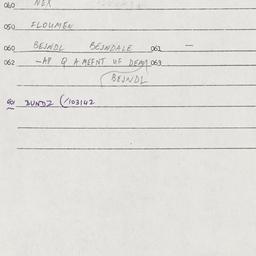 060 NEX
050 FLOUMEN
060 BESNDL BESNDALE 061 —
062 -AP Q A MEENT UF DEAM 063
BESNDL
601 DUNDZ (/103142